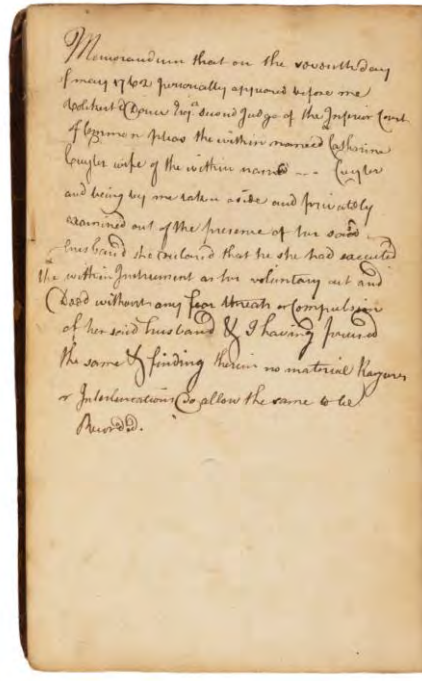 Memorandum that on the seventh day
of may 1762 personally appeared before me
Volckert P Douw Esqr. second Judge of the Inferior Court
of Common pleas the within named Catherine
Cuyler wife of the within named --- Cuyler
and being by me taken aside and privately
examined out of the presence of her said
husband she declared that he she had executed
the within Instrument as her voluntary act and
Deed without any fear threats or Compulsion
of her said husband & I having perused
the same & finding therein no material Razures
or Interlineations Do allow the same to be
Recorded.